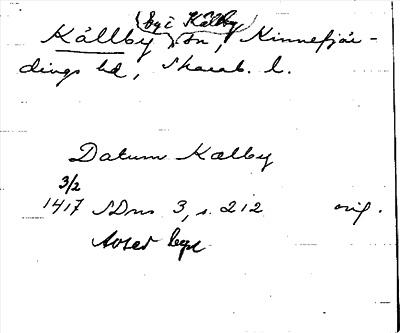 by i Källby
Källby sn, Kinnefjär-
dings hd, Skarab. l.
Datum Kælby
3/2
1417 SDns 3, s. 212 orig.
Avser byn